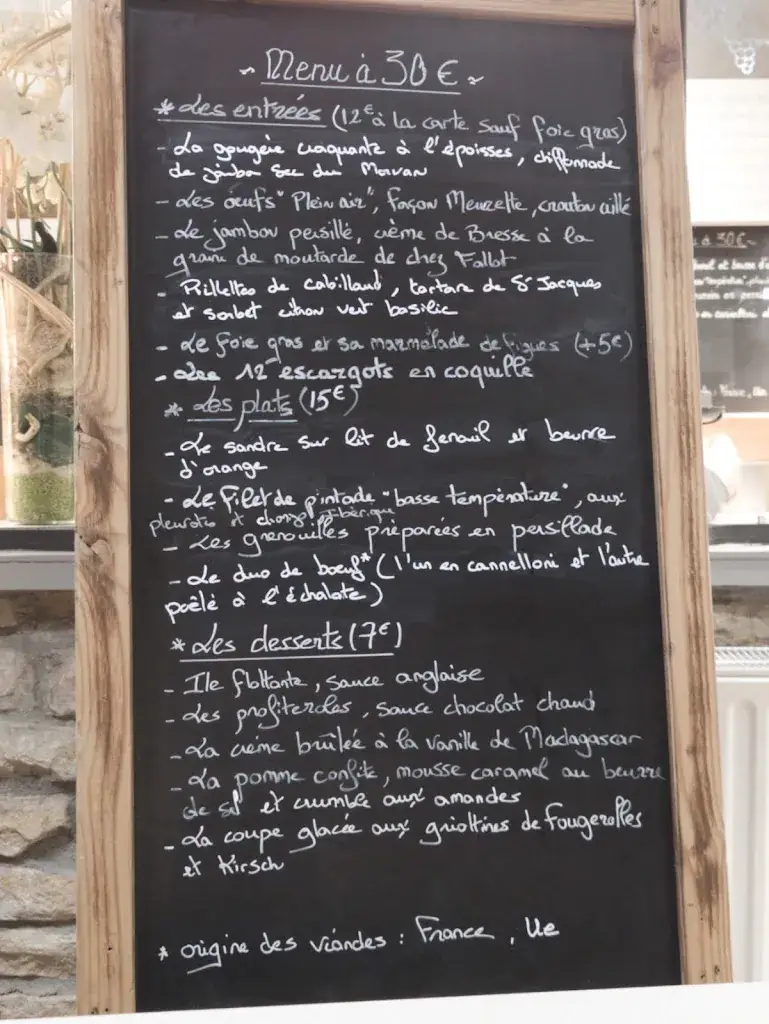 ~ Menu à 30 € ~
* Les entrées (12€ à la carte sauf foie gras)
- La gougère craquante à l'époisses, chiffonnade
de jambon sec du Morvan
- Les œufs "Plein air", façon Meurette, crouton aillé
- Le jambon persillé, crème de Bresse à la
graine de moutarde de chez Fallot
- Rillettes de cabillaud, tartare de St Jacques
et sorbet citron vert basilic
- Le foie gras et sa marmelade de figues (+5€)
- Les 12 escargots en coquille
* Les plats (15€)
- Le sandre sur lit de fenouil et beurre
d'orange
- Le Filet de pintade "basse température", aux
pleurotes et chorizo Ibérique
- Les grenouilles préparées en persillade
- Le duo de bœuf* (l'un en cannelloni et l'autre
poêlé à l'échalote)
* Les desserts (7€)
- Ile flottante, sauce anglaise
- Les profiteroles, sauce chocolat chaud
- La crème brûlée à la vanille de Madagascar
- La pomme confite, mousse caramel au beurre
de sel et crumble aux amandes
- La coupe glacée aux griottines de Fougerolles
et Kirsch
* origine des viandes : France, Ue